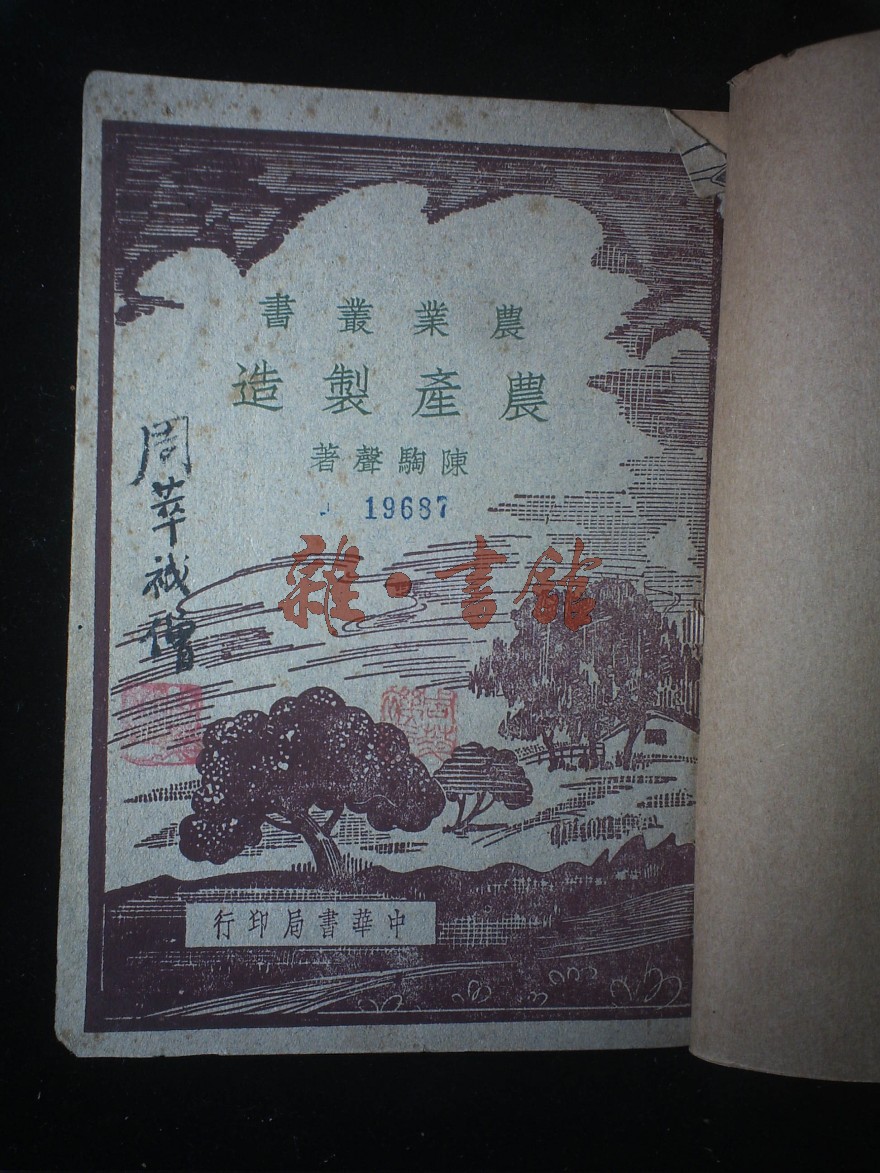 農業叢書
農產製造
陳騊聲著
19687
雜·書館
周萃
中華書局印行